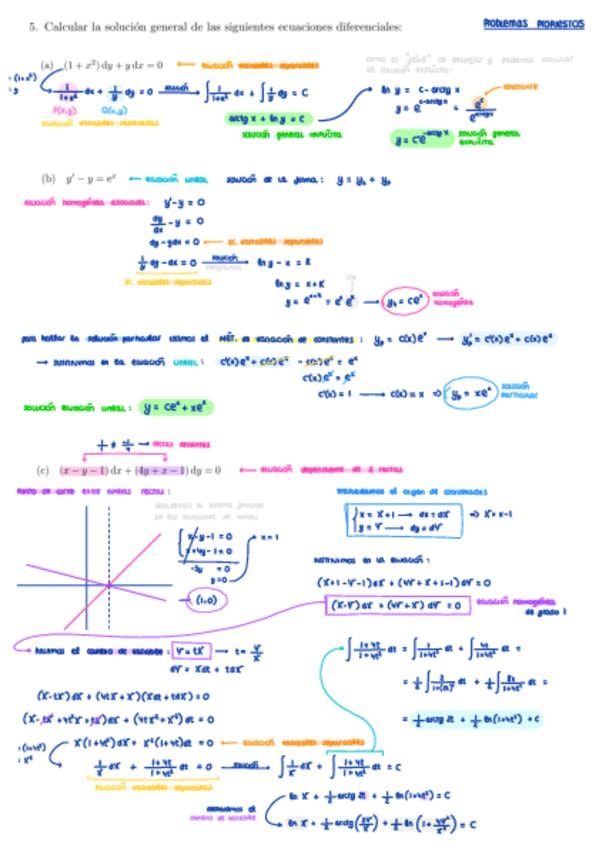 PROBLEMAS PROPUESTOS
5. Calcular la solución general de las siguientes ecuaciones diferenciales:
(a) (1 + x²) dy + y dx = 0 ← ecuación variables separables
: (1+x²)
: y
1/(1+x²) dx + 1/y dy = 0 solución → ∫ 1/(1+x²) dx + ∫ 1/y dy = C
P(x,y) Q(x,y)
ecuación variables separadas
arctg x + ln y = C
solución general implícita
ln y = c - arctg x
y = e^(c-arctg x) = e^c/e^(arctg x) constante
y = c'e^(-arctg x) solución general explícita
(b) y' − y = eˣ ← ecuación lineal solución de la forma: y = yₕ + yₚ
ecuación homogénea asociada: y'-y = 0
dy/dx - y = 0
dy - ydx = 0 ← ec. variables separables
1/y dy - dx = 0 solución → ln y - x = K
ec. variables separadas
ln y = x+K
y = e^(x+K) = eˣ e^K → yₕ = ceˣ solución homogénea
para hallar la solución particular usamos el MÉT. de variación de constantes: yₚ = c(x)eˣ → yₚ' = c'(x)eˣ + c(x)eˣ
→ sustituimos en la ecuación lineal: c'(x)eˣ + c(x)eˣ - c(x)eˣ = eˣ
c'(x)eˣ = eˣ
c'(x) = 1 → c(x) = x ⇒ yₚ = xeˣ solución particular
solución ecuación lineal: y = ceˣ + xeˣ
→ rectas secantes
(c) (x − y − 1) dx + (4y + x − 1) dy = 0 ← ecuación dependiente de 2 rectas
punto de corte entre ambas rectas:
x-y-1 = 0
x+4y-1 = 0
-5y = 0
y = 0
x = 1
(1,0)
trasladamos el origen de coordenadas
x = X+1 → dx = dX
y = Y → dy = dY
⇒ X = x-1
sustituimos en la ecuación:
(X+1-Y-1)dX + (4Y+X+1-1)dY = 0
(X-Y)dX + (4Y+X)dY = 0 ecuación homogénea de grado 1
→ hacemos el cambio de variable: Y = tX → t = Y/X
dY = Xdt + tdX
(X-tX)dX + (4tX+X)(Xdt+tdX) = 0
(X-tX+4t²X+tX)dX + (4tX²+X²)dt = 0
X(1+4t²)dX + X²(1+4t)dt = 0 ← ecuación variables separables
: (1+4t²)
: X²
1/X dX + (1+4t)/(1+4t²) dt = 0 solución → ∫ 1/X dX + ∫ (1+4t)/(1+4t²) dt = C
ecuación variables separadas
∫ (1+4t)/(1+4t²) dt = ∫ 1/(1+4t²) dt + ∫ 4t/(1+4t²) dt =
= 1/2 ∫ 2/(1+(2t)²) dt + 1/2 ∫ 8t/(1+4t²) dt =
= 1/2 arctg 2t + 1/2 ln(1+4t²) + C
ln X + 1/2 arctg 2t + 1/2 ln(1+4t²) = C
deshacemos el cambio de variable
ln X + 1/2 arctg(2Y/X) + 1/2 ln(1+4Y²/X²) = C